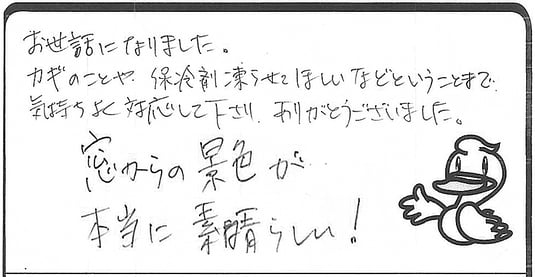 お世話になりました。
カギのことや、保冷剤凍らせてほしいなどということまで、
気持ちよく対応して下さり、ありがとうございました。
窓からの景色が
本当に素晴らしい!